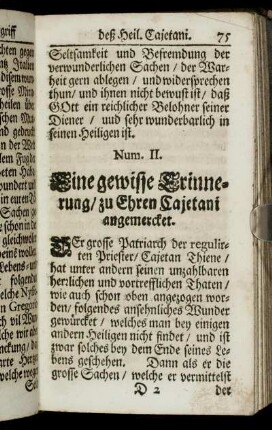 deß Heil. Cajetani. 75
Seltsamkeit und Befremdung der
verwunderlichen Sachen / der War-
heit gern ablegen / und widersprechen
thun / und ihnen nicht bewust ist / daß
GOtt ein reichlicher Belohner seiner
Diener / und sehr wunderbarlich in
seinen Heiligen ist.
Num. II.
Eine gewisse Erinne-
rung / zu Ehren Cajetani
angemercket.
DEr grosse Patriarch der regulir-
ten Priester / Cajetan Thiene /
hat unter andern seinen unzahlbaren
herzlichen und vortrefflichen Thaten /
wie auch schon oben angezogen wor-
den / folgendes ansehnliches Wunder
gewürcket / welches man bey einigen
andern Heiligen nicht findet / und ist
zwar solches bey dem Ende seines Le-
bens geschehen. Dann als er die
grosse Sachen / welche er vermittelst
D 2 der